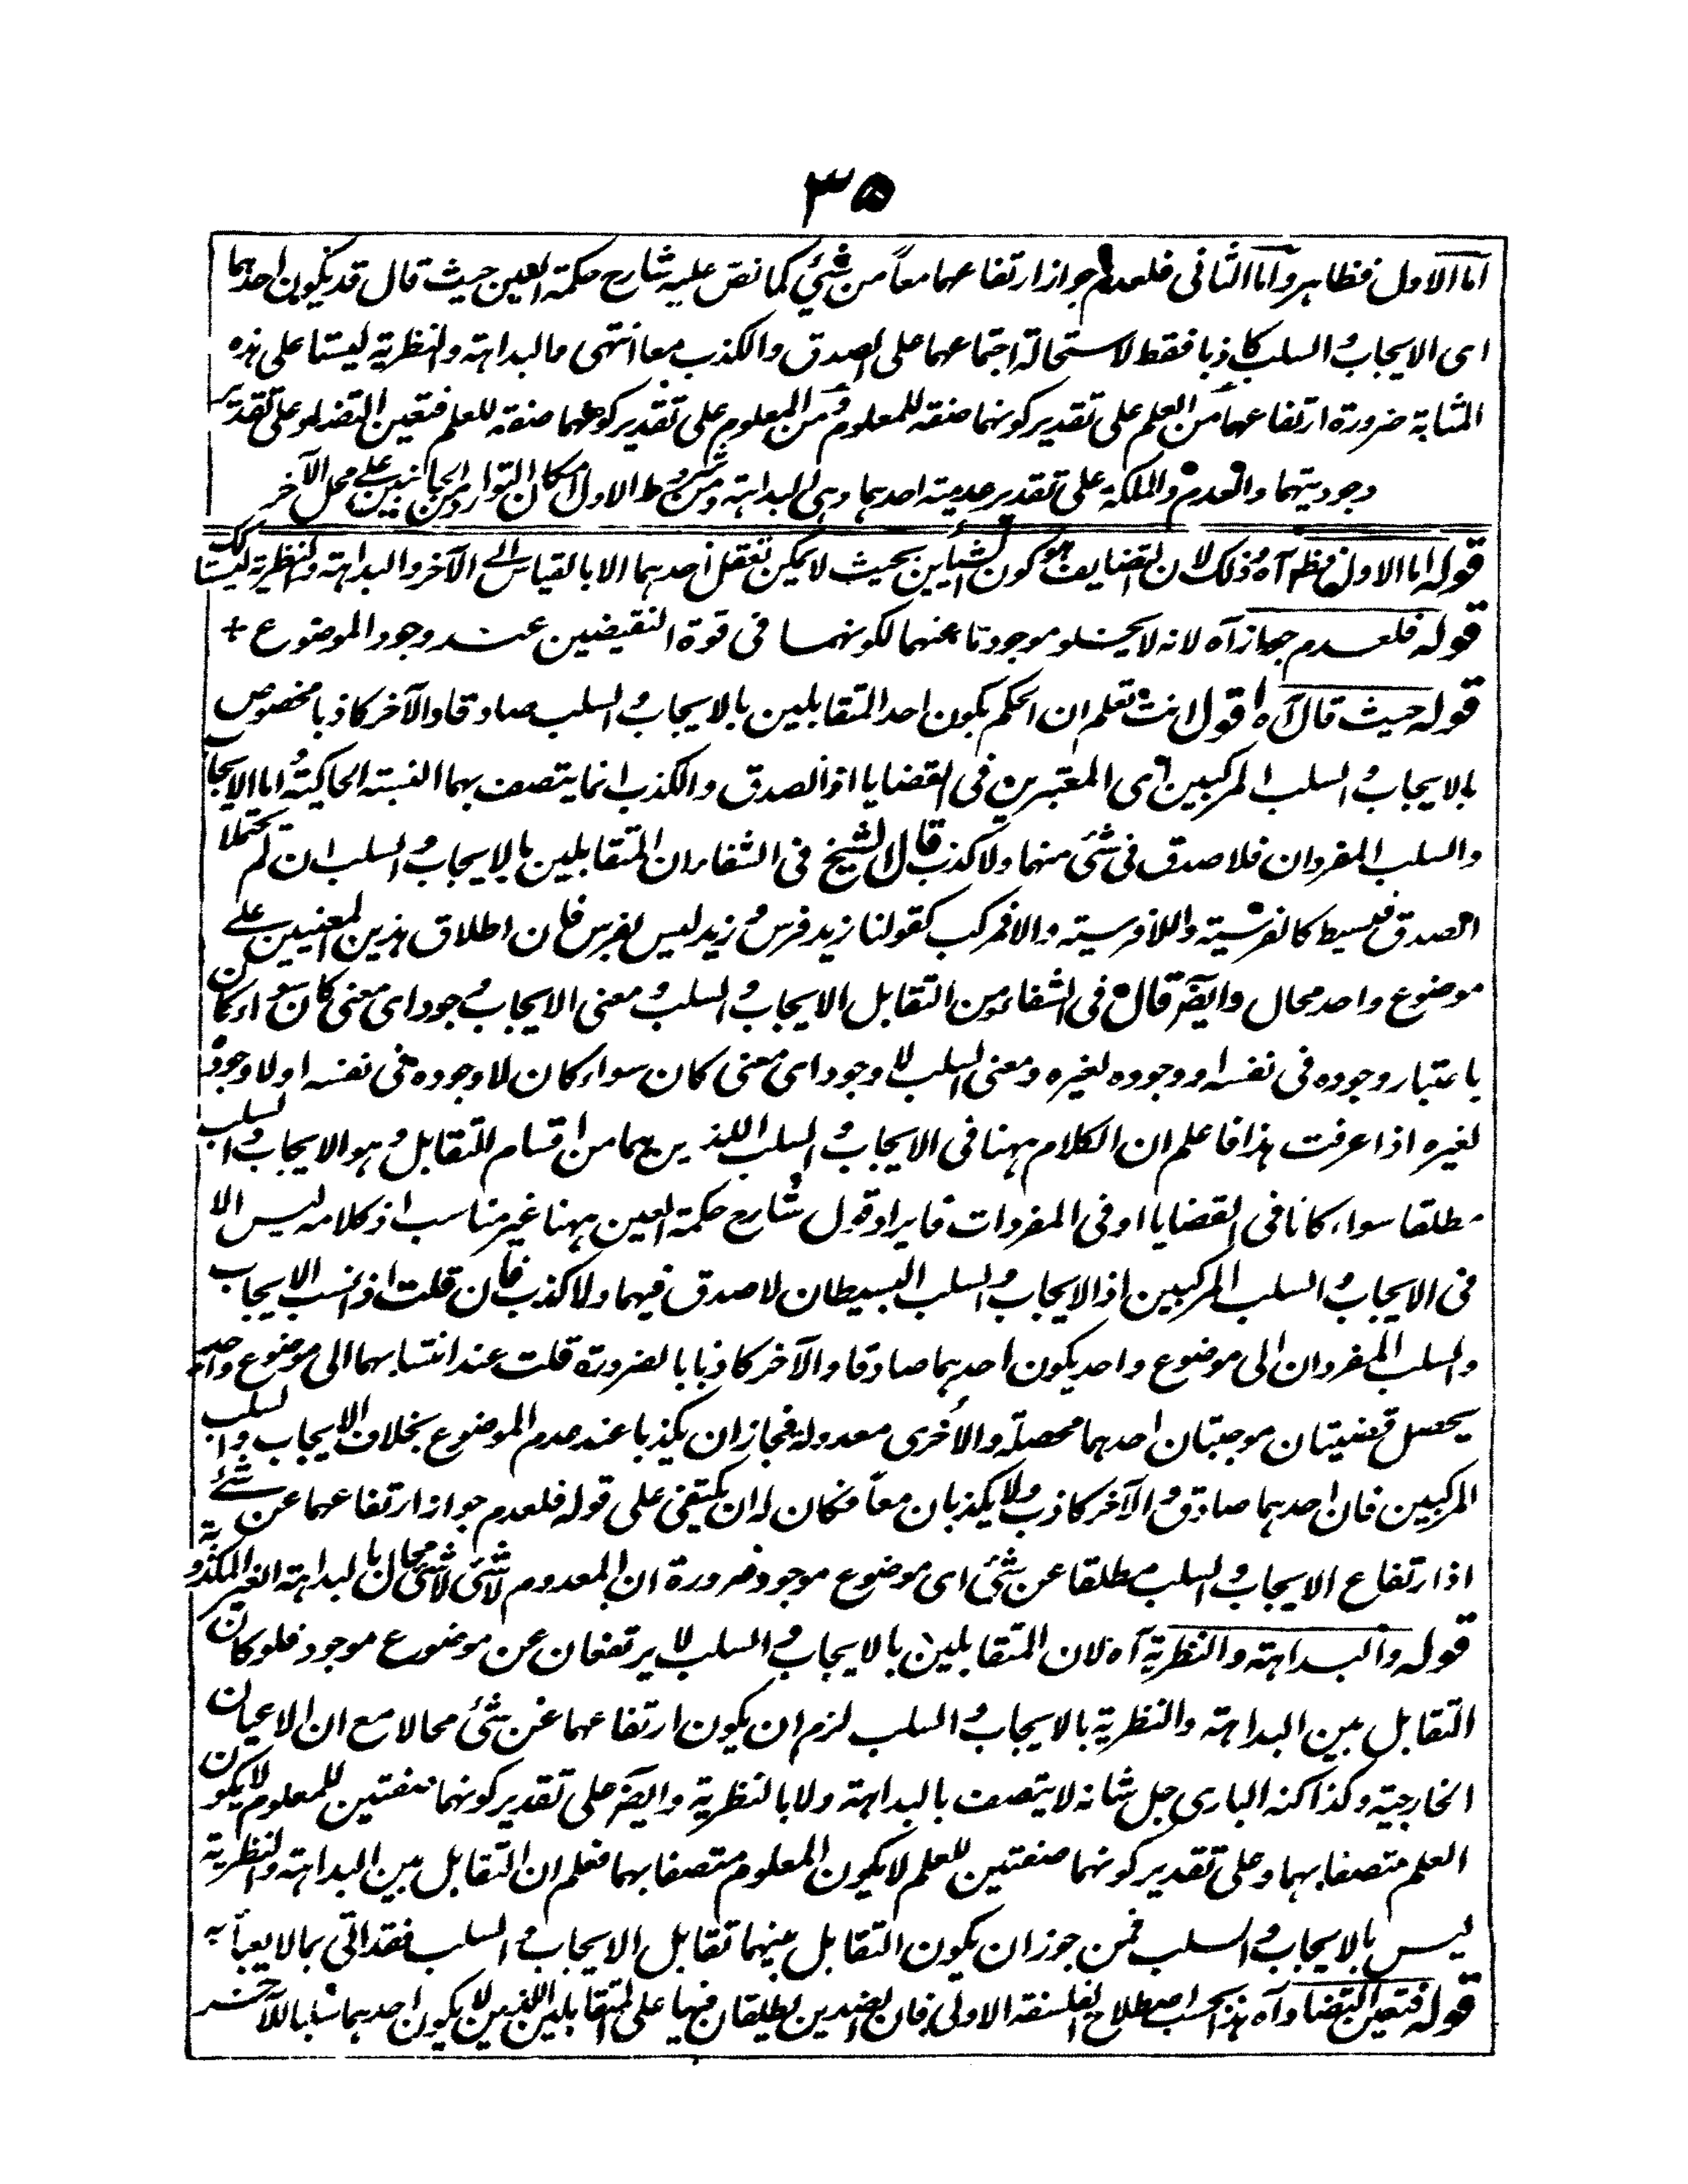 ٣٥
اما الاول فظاهر واما الثانى فلعدم جواز ارتفاعهما معاً من شئ كما نص عليه شارح حكمة العين حيث قال قد يكون احدهما
اى الايجاب والسلب كاذبا فقط لاستحالة اجتماعهما على الصدق والكذب معا انتهى والبداهة والنظرية ليستا على هذه
المثابة ضرورة ارتفاعهما من العلم على تقدير كونهما صفة للمعلوم ومن المعلوم على تقدير كونهما صفة للعلم فتعين التضاد على تقدير
وجوديتهما والعدم والملكة على تقدير عدمية احدهما وهى البداهة ومن شروط الاول امكان التوارد من الجانبين على محل الآخر
قوله اما الاول فظ آه وذلك لان التضايف هو كون الشيأين بحيث لا يمكن تعقل احدهما الا بالقياس الى الآخر والبداهة والنظرية ليستا كك
قوله فلعدم جواز آه لانه لا يخلو موجود تا عنهما لكونهما فى قوة النقيضين عند وجود الموضوع +
قوله حيث قال آه اقول انت تعلم ان الحكم بكون احد المتقابلين بالايجاب والسلب صادقا والآخر كاذبا مخصوص
بالايجاب والسلب المركبين اى المعتبرين فى القضايا اذ الصدق والكذب انما يتصف بهما النسبة الحاكية واما الايجاب
والسلب المفردان فلا صدق فى شئ منهما ولا كذب قال الشيخ فى الشفاء ان المتقابلين بالايجاب والسلب ان لم يحتملا
الصدق فبسيط كالفرسية واللافرسية والا فمركب كقولنا زيد فرس وزيد ليس بفرس فان اطلاق هذين المعنيين على
موضوع واحد محال وايضا قال فى الشفاء ومن التقابل الايجاب والسلب ومعنى الايجاب وجود اى معنى كان سواء كان
باعتبار وجوده فى نفسه او وجوده لغيره ومعنى السلب لا وجود اى معنى كان سواء كان لا وجوده فى نفسه او لا وجوده
لغيره اذا عرفت هذا فاعلم ان الكلام ههنا فى الايجاب والسلب اللذين هما من اقسام التقابل وهو الايجاب والسلب
مطلقا سواء كانا فى القضايا او فى المفردات فايراد قول شارح حكمة العين ههنا غير مناسب اذ كلامه ليس الا
فى الايجاب والسلب المركبين اذ الايجاب والسلب البسيطان لا صدق فيهما ولا كذب فان قلت اذ انتسب الايجاب
والسلب المفردان الى موضوع واحد يكون احدهما صادقا والآخر كاذبا بالضرورة قلت عند انتسابهما الى موضوع واحد
يحصل قضيتان موجبتان احدهما محصلة والاخرى معدولة فجاز ان يكذبا عند عدم الموضوع بخلاف الايجاب والسلب
المركبين فان احدهما صادق والآخر كاذب ولا يكذبان معاً فكان له ان يكتفى على قوله فلعدم جواز ارتفاعهما عن شئ
اذ ارتفاع الايجاب والسلب مطلقا عن شئ اى موضوع موجود ضرورة ان المعدوم لا شئ لا شئ محال بالبداهة الغير المكذوبة
قوله والبداهة والنظرية آه لان المتقابلين بالايجاب والسلب لا يرتفعان عن موضوع موجود فلو كان
التقابل بين البداهة والنظرية بالايجاب والسلب لزم ان يكون ارتفاعهما عن شئ محالا مع ان الاعيان
الخارجية وكذا كنه البارى جل شانه لا يتصف بالبداهة ولا بالنظرية وايضا على تقدير كونهما صفتين للمعلوم لا يكون
العلم متصفا بهما وعلى تقدير كونهما صفتين للعلم لا يكون المعلوم متصفا بهما فعلم ان التقابل بين البداهة والنظرية
ليس بالايجاب والسلب فمن جوز ان يكون التقابل بينهما تقابل الايجاب والسلب فقد اتى بما لا يعبأ به
قوله فتعين التضاد آه هذا بحسب اصطلاح الفلسفة الاولى فان الضدين يطلقان فيها على المتقابلين اللذين لا يكون احدهما سلبا للآخر